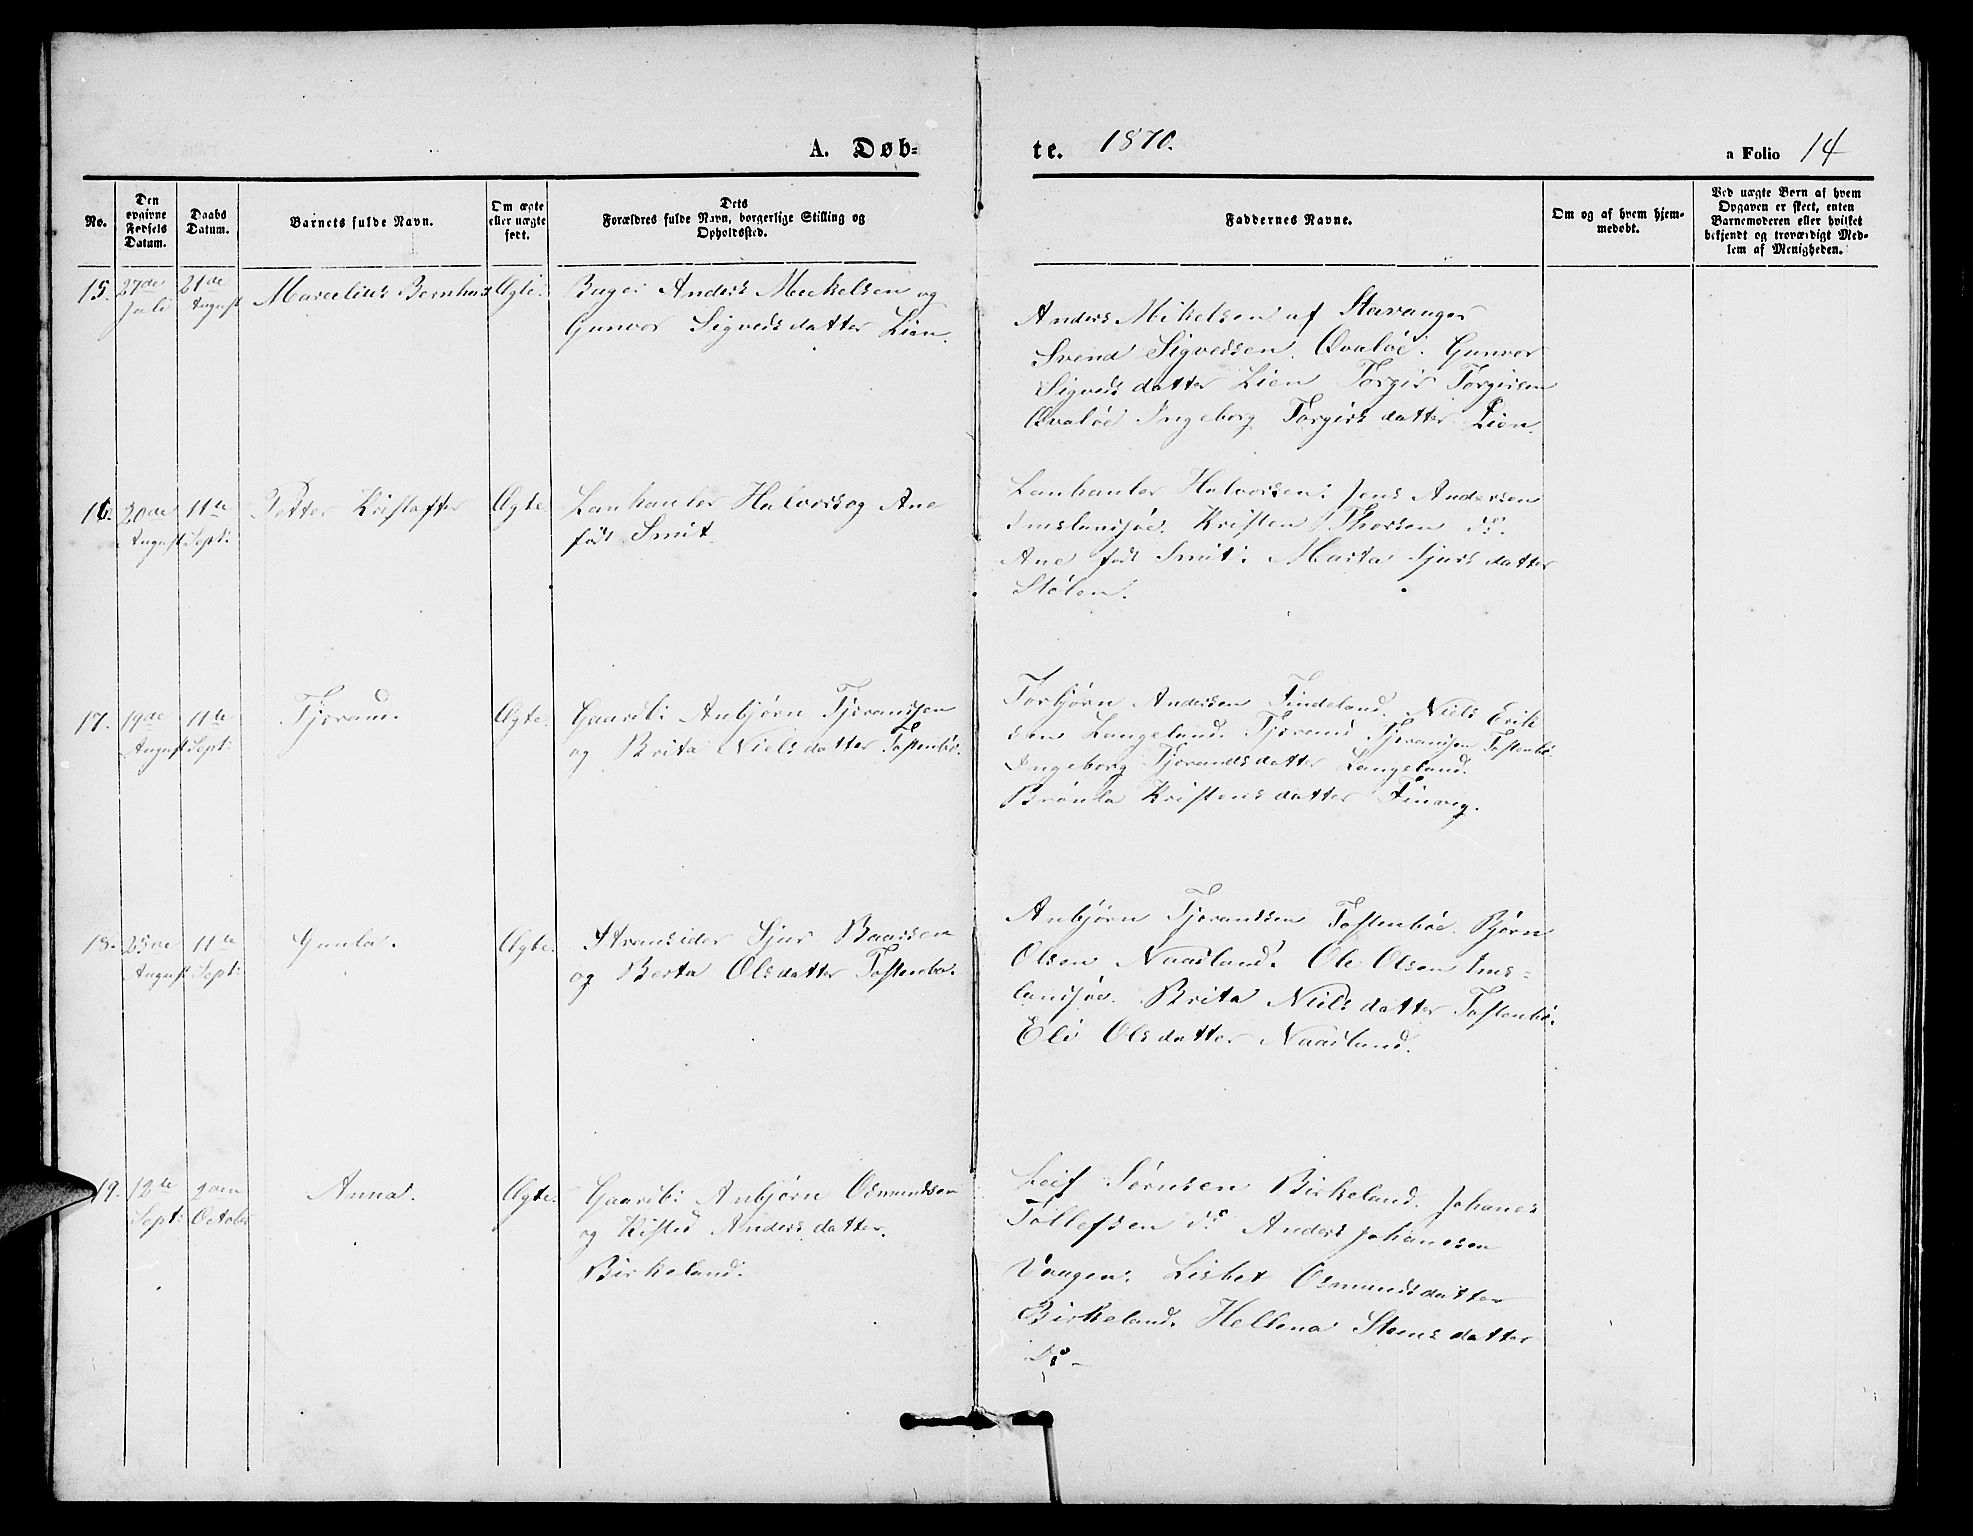 A. Døb=
te. 1870.
a Folio 14
No.
Den
opgivne
Fødsels
Datum.
Daabs
Datum.
Barnets fulde Navn.
Om ægte
eller uægte
født.
Dets
Forældres fulde Navn, borgerlige Stilling og
Opholdssted.
Faddernes Navne.
Om og af hvem hjem-
medøbt.
Ved uægte Børn af hvem
Opgaven er skeet, enten
Barnemoderen eller hvilket
bekjendt og troværdigt Med-
lem af Menigheden.
15. 27de Juli
21de August
Marcelius Bernhus
Ægte.
Anders Mickelsen og
Gunvor Sigvedsdatter Lien.
Anders Mikelsen af Stavanger
Svend Sigvedsen. Qvaløe. Gunvor
Sigvedsdatter Lien Torgir Torgirsen
Qvaløe Ingeborg Torgirsdatter Lien.
16. 20de August
11te Sept:
Petter Kristoffer
Ægte
Lanhanler Halvors og Ane
født Smit
Lanhanler Halvorsen. Jens Andersen
Imslandsøe. Kristen Thorsen ds.
Ane født Smit. Marta Sjursdatter
Stølen.
17. 19de August
11te Sept:
Tjøran.
Ægte.
Gaardb: Anbjørn Tjørandsen
og Brita Nielsdatter Tostenbø.
Torbjørn Andersen Tindeland. Niels Erik
sen Langeland. Tjørand Tjørandsen Tostenbø.
Ingeborg Tjørandsdatter Langeland.
Brønla Kristensdatter Finvig.
18. 25de August
11te Sept:
Gunla.
Ægte.
Stransider Sjur Baarsen
og Berta Olsdatter Tostenbø.
Anbjørn Tjørandsen Tostenbøe. Bjørn
Olsen Naadland. Ole Olsen Ims=
landsøe. Brita Nielsdatter Tostenbø.
Eli Olsdatter Naadland.
19. 12te Sept:
2den October
Anna.
Ægte.
Gaardb: Anbjørn Osmundsen
og Kisted Andersdatter.
Birkeland.
Leif Sørnsen Birkeland. Johanes
Tollefsen ds Anders Johanesen
Vaagen. Lisbet Osmundsdatter
Birkeland. Hellena Steensdatter
Ds -